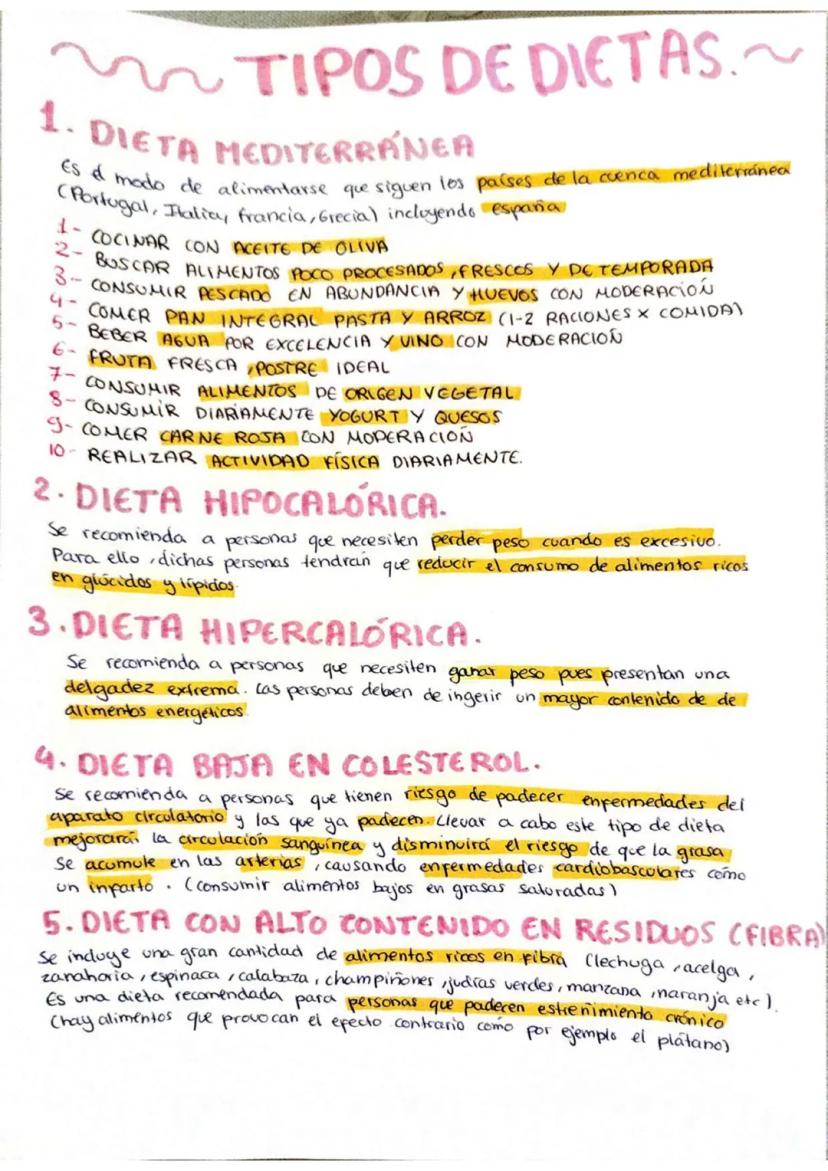 TIPOS DE DIETAS.
1. DIETA MEDITERRÁNEA
Es el modo de alimentarse que siguen los países de la cuenca mediterránea
(Portugal, Italia, francia, Grecia) incluyendo españa
1- COCINAR CON ACEITE DE OLIVA
2- BUSCAR ALIMENTOS POCO PROCESADOS, FRESCOS Y DE TEMPORADA
3- CONSUMIR PESCADO EN ABUNDANCIA Y HUEVOS CON MODERACIÓN
4- COMER PAN INTEGRAL PASTA Y ARROZ (1-2 RACIONES X COMIDA)
5- BEBER AGUA POR EXCELENCIA Y VINO CON MODERACIÓN
6- FRUTA FRESCA, POSTRE IDEAL
7- CONSUMIR ALIMENTOS DE ORIGEN VEGETAL
8- CONSUMIR DIARIAMENTE YOGURT Y QUESOS
9- COMER CARNE ROJA CON MODERACIÓN
10- REALIZAR ACTIVIDAD FÍSICA DIARIAMENTE.
2. DIETA HIPOCALÓRICA.
Se recomienda a personas que necesiten perder peso cuando es excesivo.
Para ello, dichas personas tendrán que reducir el consumo de alimentos ricos
en glúcidos y lípidos.
3. DIETA HIPERCALÓRICA.
Se recomienda a personas que necesiten ganar peso pues presentan una
delgadez extrema. Las personas deben de ingerir un mayor contenido de de
alimentos energéticos.
4. DIETA BAJA EN COLESTEROL.
Se recomienda a personas que tienen riesgo de padecer enfermedades del
aparato circulatorio y las que ya padecen. Llevar a cabo este tipo de dieta
mejorará la circulación sanguínea y disminuirá el riesgo de que la grasa
se acumule en las arterias, causando enfermedades cardiobasculares como
un infarto. (consumir alimentos bajos en grasas saturadas)
5. DIETA CON ALTO CONTENIDO EN RESIDUOS (FIBRA)
Se incluye una gran cantidad de alimentos ricos en fibra (lechuga, acelga,
zanahoria, espinaca, calabaza, champiñones, judías verdes, manzana, naranja etc).
Es una dieta recomendada para personas que padecen estreñimiento crónico
(hay alimentos que provocan el efecto contrario como por ejemplo el plátano)